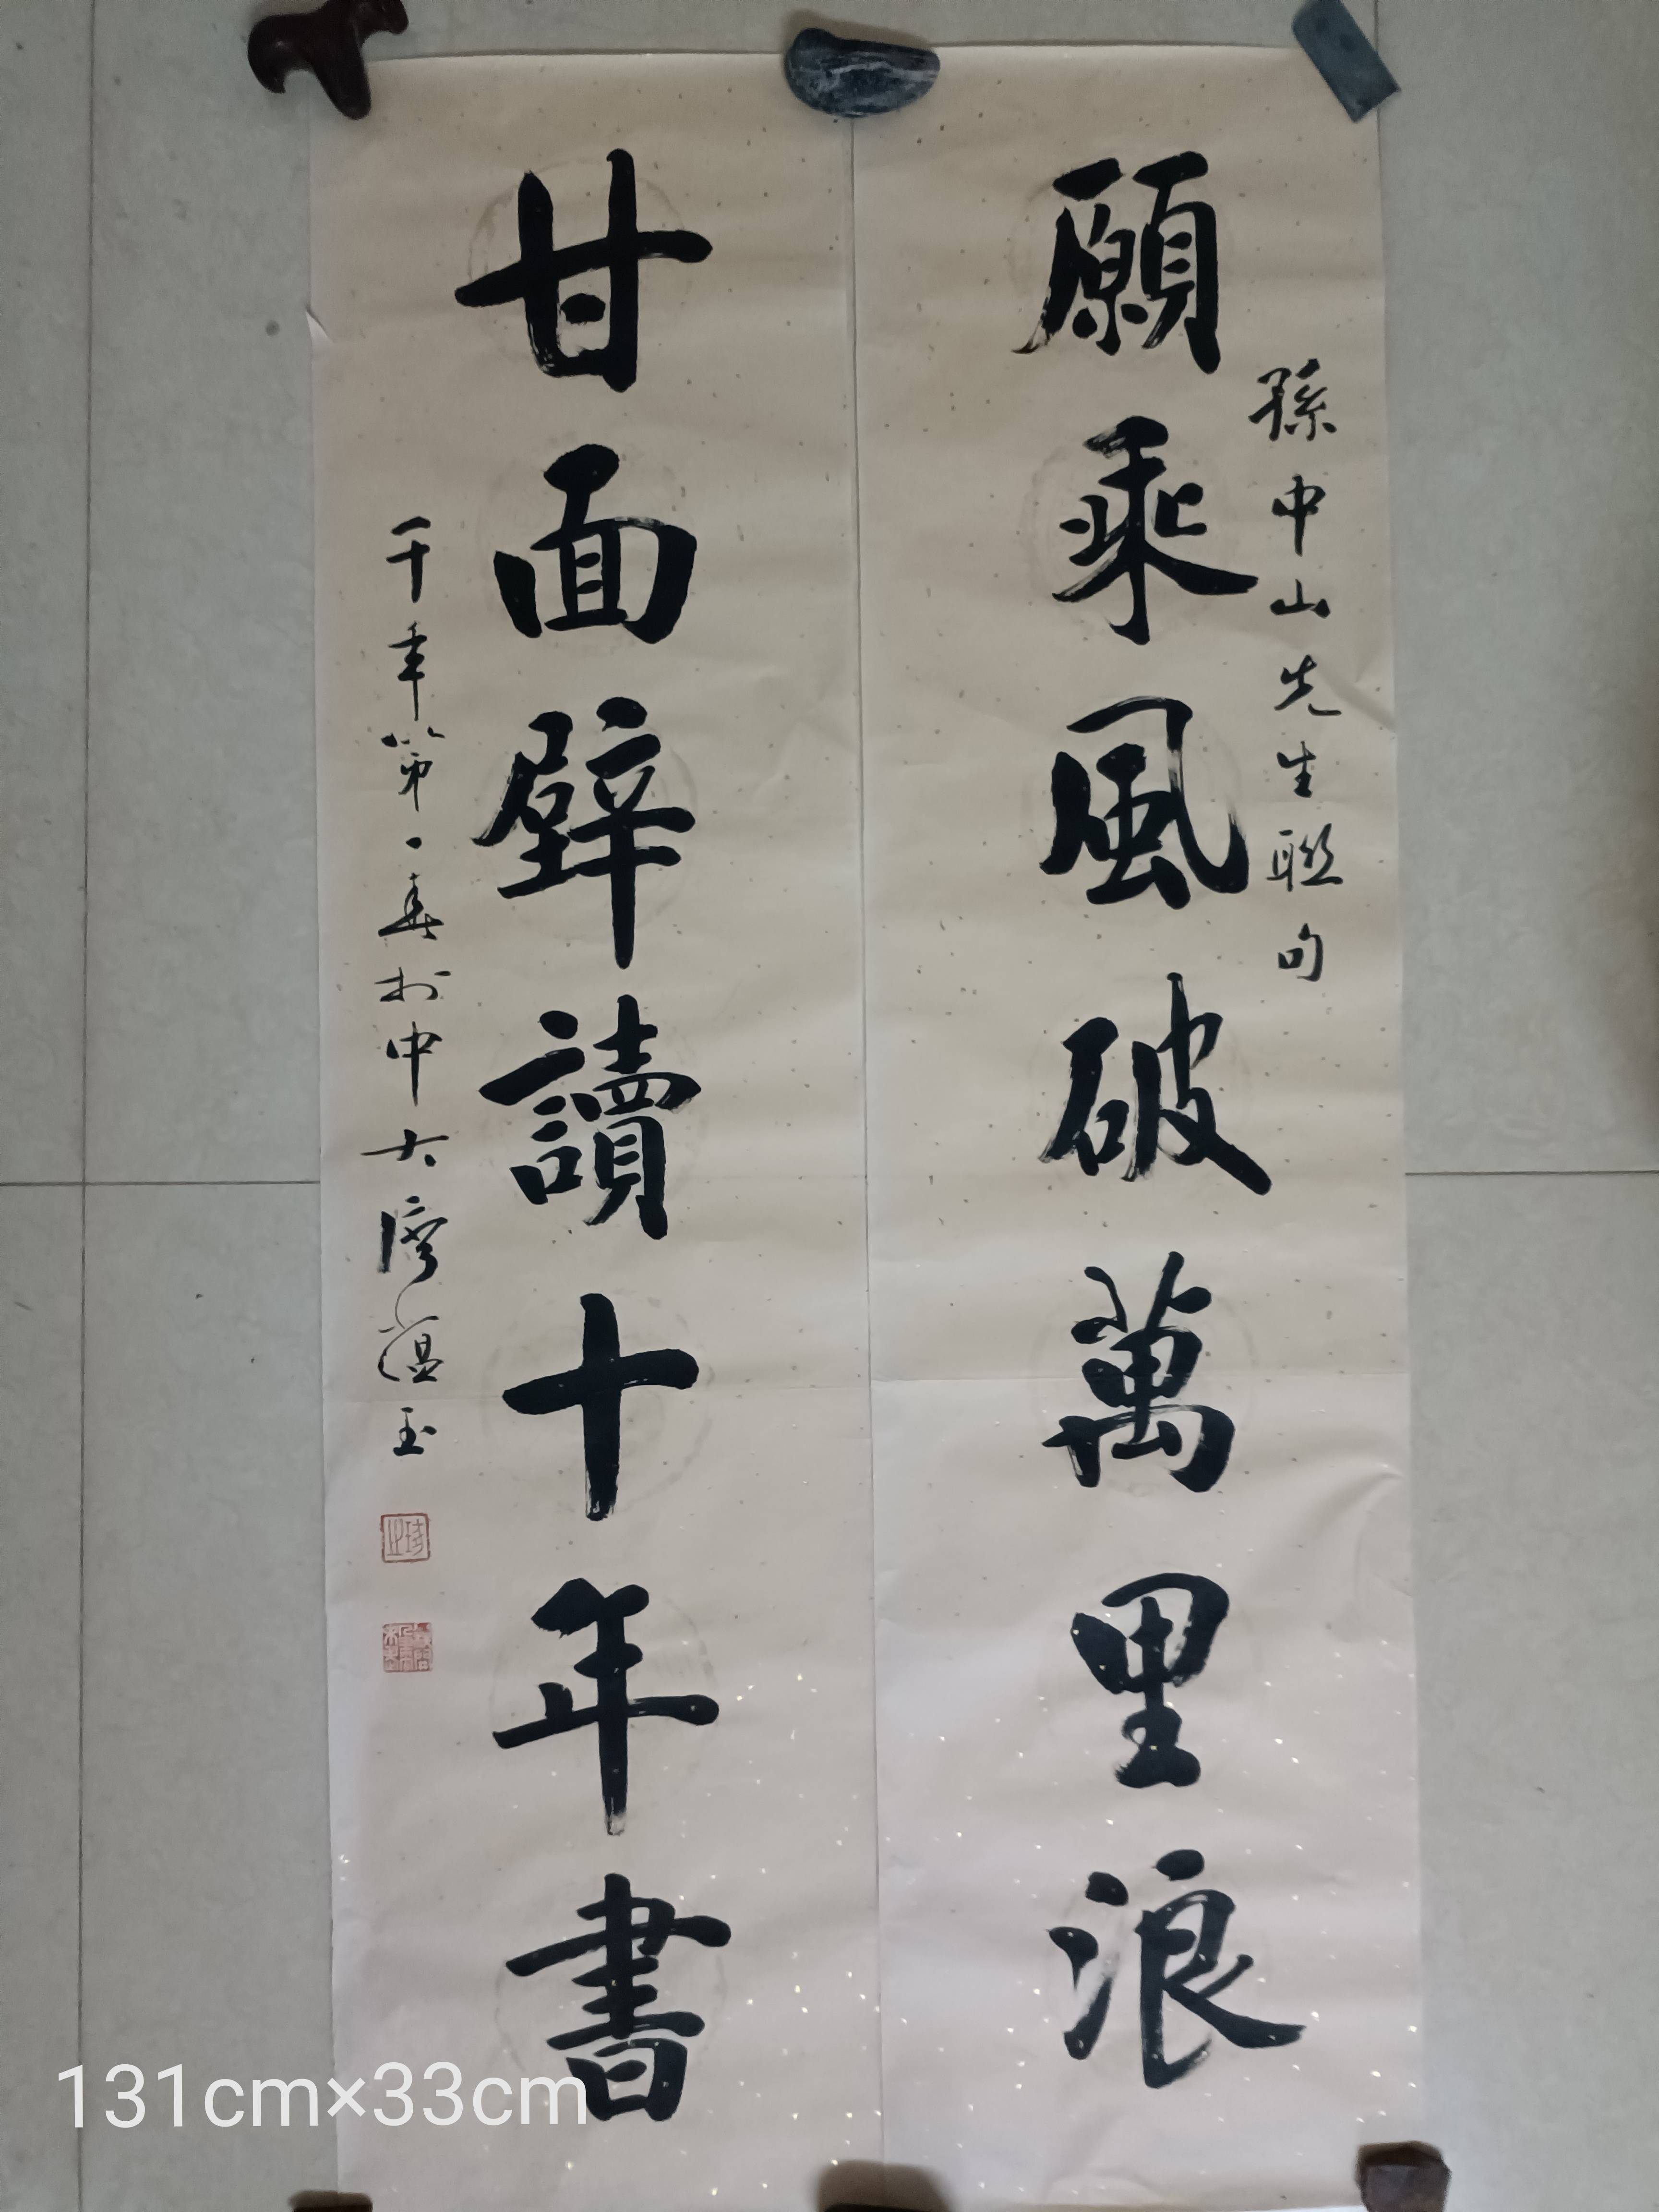 願乘風破萬里浪
孫中山先生聯句
甘面壁讀十年書
千年第一春於中大 蘊玉
131cm×33cm